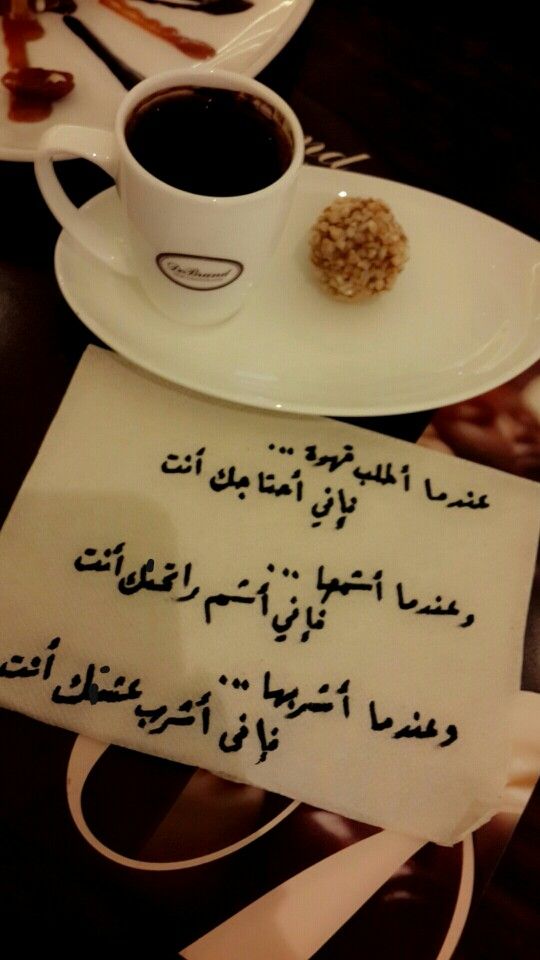 DeBrand
nd
عندما أطلب قهوة ...
فإني أحتاجك أنت
وعندما أشمها ...
فإني أشم رائحتك أنت
وعندما أشربها ...
فإني أشرب عشقك أنت